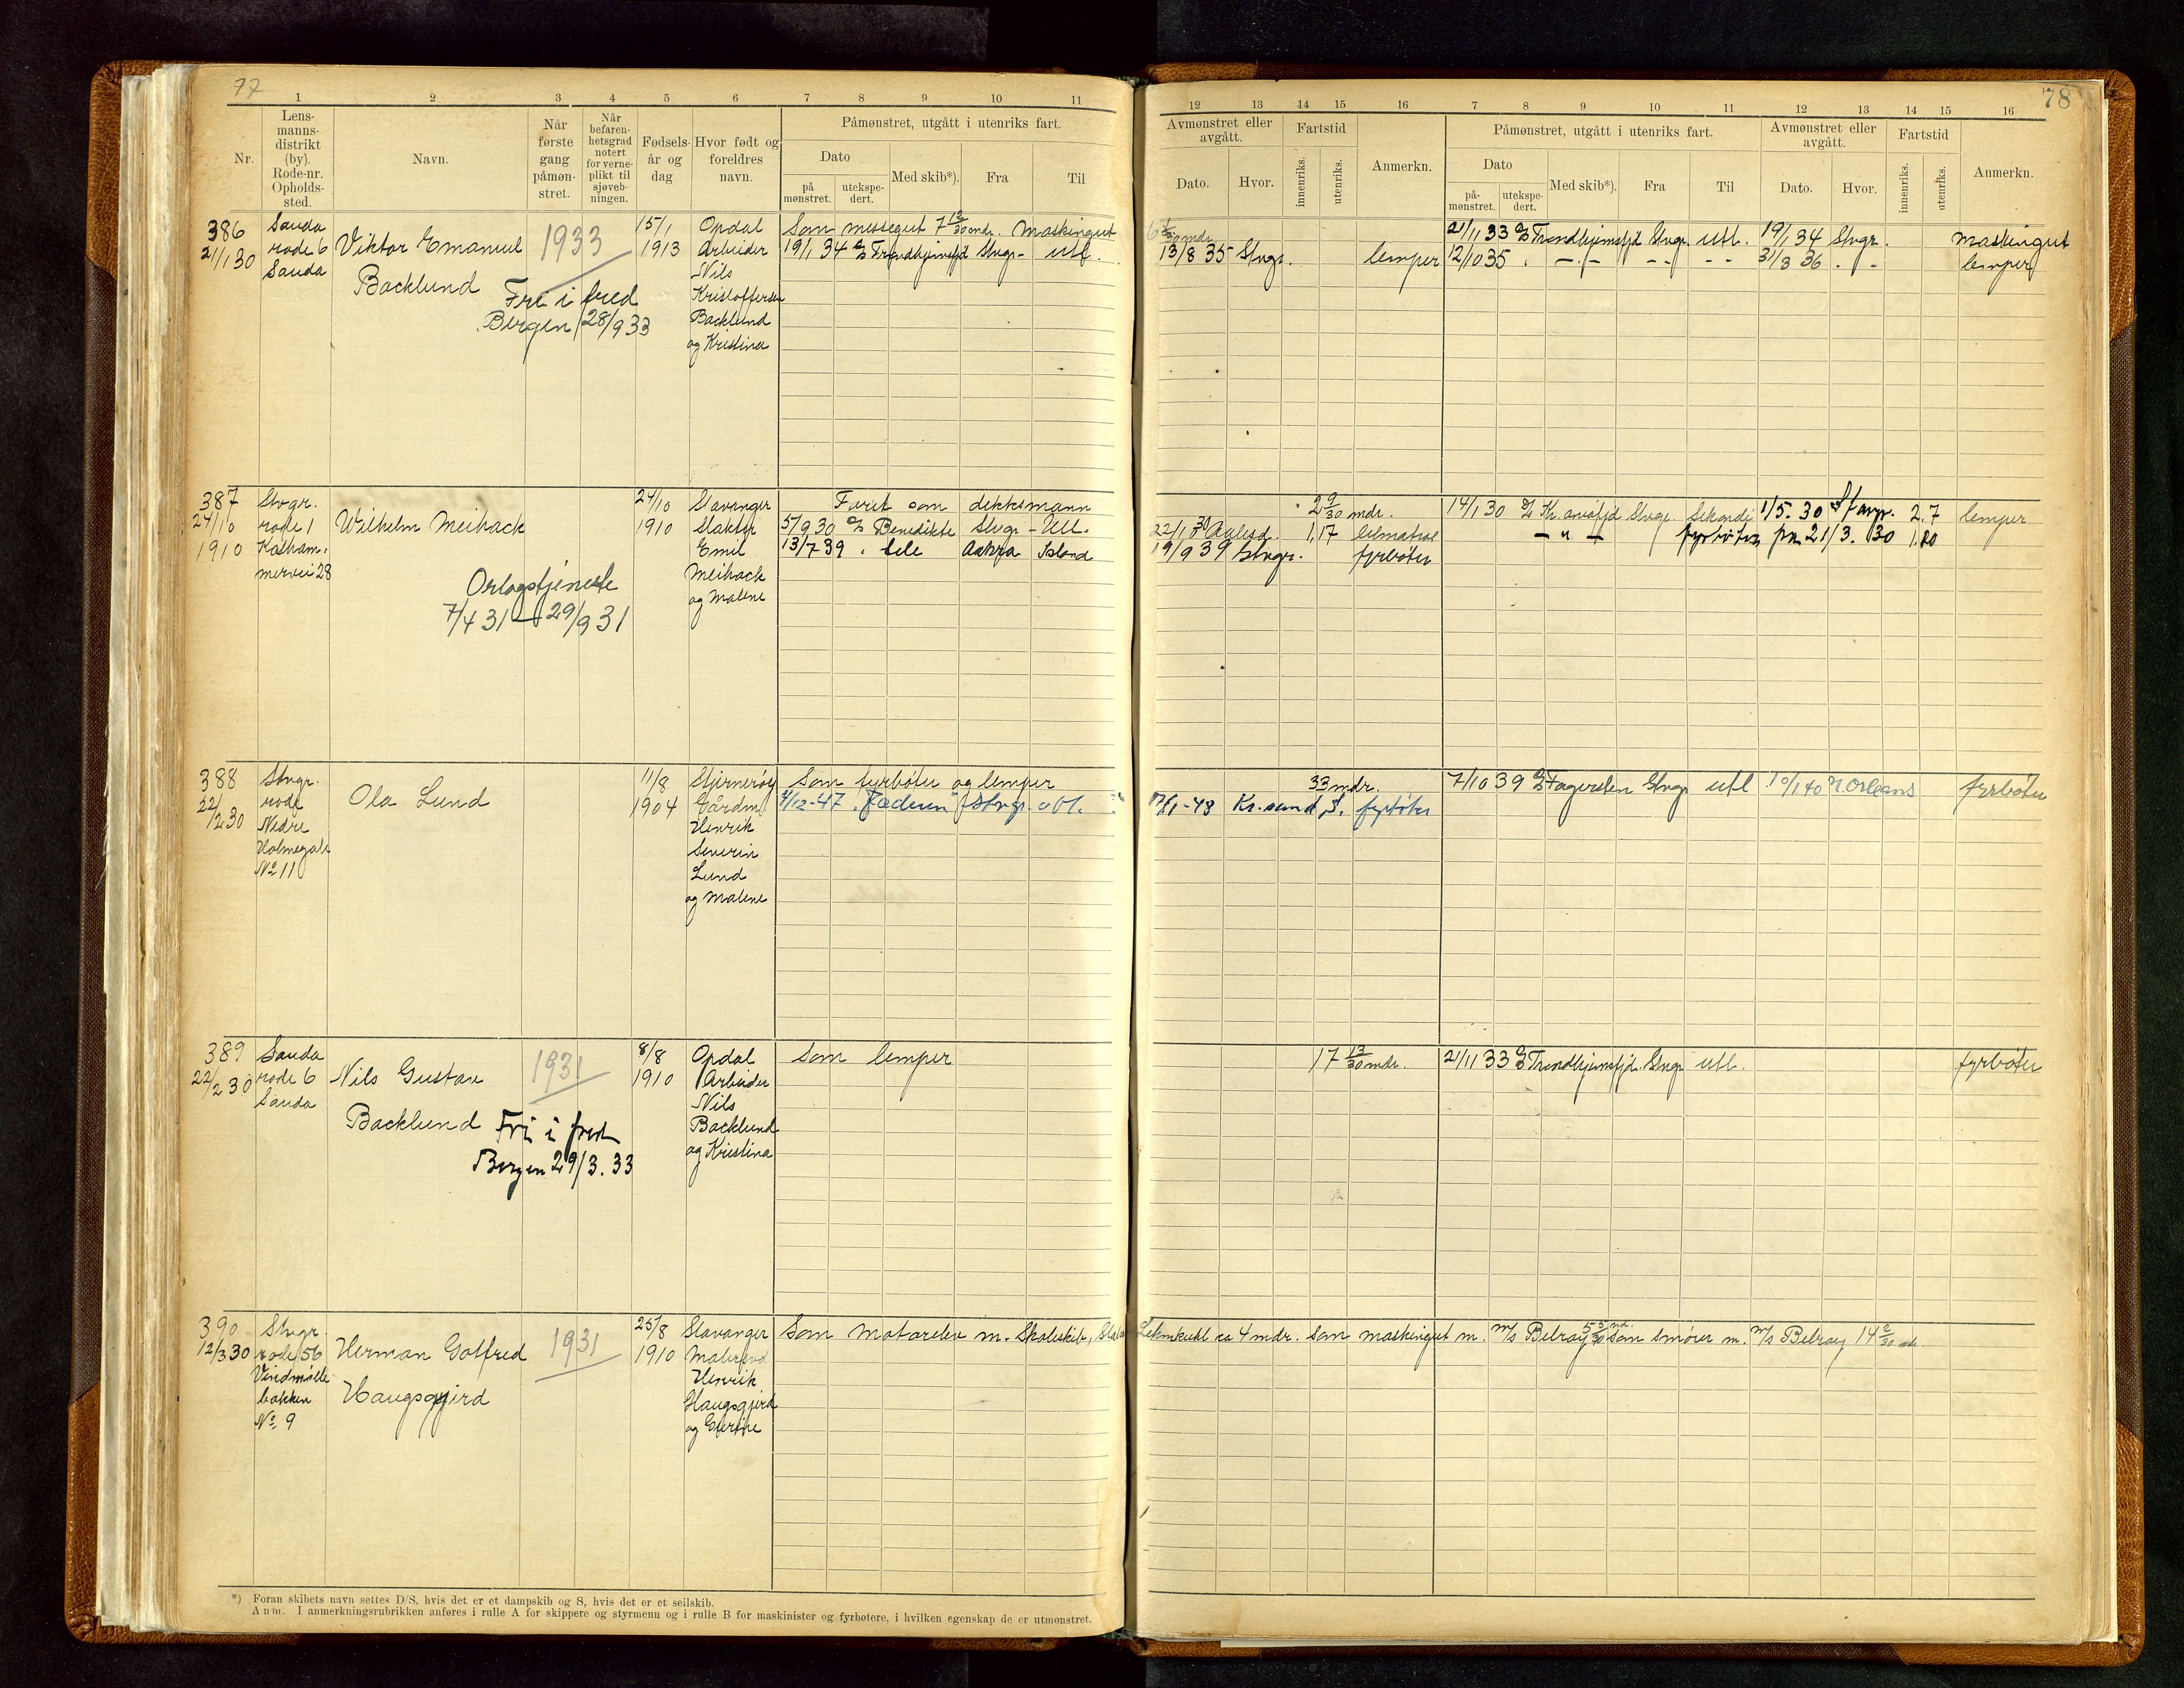 77
1 2 3 4 5 6 7 8 9 10 11
Nr.
Lens-
manns-
distrikt
(by).
Rode-nr.
Opholds-
sted.
Navn.
Når
første
gang
påmøn-
stret.
Når
befaren-
hetsgrad
notert
for verne-
plikt til
sjøveb-
ningen.
Fødsels-
år og
dag
Hvor født og
foreldres
navn.
Påmønstret, utgått i utenriks fart.
Dato
på
mønstret.
utekspe-
dert.
Med skib*).
Fra
Til
386
21/1 30
Sauda
rode 6
Sauda
Viktor Emanuel
Backlund
1933
Fri i fred
Bergen 28/9 33
15/1
1913
Opdal
Arbeider
Nils
Kristoffersen
Backlund
og Kristina
Som messegut 7 12/30 mdr. Maskingut
19/1 34 D/S Trondhjemsfjd Stvgr - utl.
387
24/10
1910
Stvgr.
rode 1
Kalham.
mervei 28
Wilhelm Meiback
Orlogstjeneste
7/4 31 - 29/9 31
24/10
1910
Stavanger
Slakter
Emil
Meiback
og Malene
Faret som dekksmann
5/9 30 D/S Benedikte Stvgr - Utl.
13/7 39 . Lele Aakra Island
388
22/2 30
Stvgr.
rode
Nedre
Holmegate
No 11
Ola Lund
11/8
1904
Stjernerøy
Gårdm.
Henrik
Severin
Lund
og Malene
Som fyrbøter og lemper
4/12-47
Stvgr. utl.
389
22/2 30
Sauda
rode 6
Sauda
Nils Gustav
Backlund
1931
Fri i fred
Bergen 29/3. 33
8/8
1910
Opdal
Arbeider
Nils
Backlund
og Kristina
Som lemper
390
12/3 30
Stvgr.
rode 56
Vindmølle
bakken
No. 9
Herman Gotfred
Haugsgjerd
1931
25/8
1910
Stavanger
Malersvd
Henrik
Haugsgjerd
og Gurine
Som motorelev m. Skoleskib, Stats
*) Foran skibets navn settes D/S, hvis det er et dampskib og S, hvis det er et seilskib.
Anm. I anmerkningsrubrikken anføres i rulle A for skippere og styrmenn og i rulle B for maskinister og fyrbøtere, i hvilken egenskap de er utmønstret.
78
12 13 14 15 16 7 8 9 10 11 12 13 14 15 16
Avmønstret eller
avgått.
Dato.
Hvor.
Fartstid
innenriks.
utenriks.
Anmerkn.
Påmønstret, utgått i utenriks fart.
Dato
på-
mønstret.
utekspe-
dert.
Med skib*).
Fra
Til
Avmønstret eller
avgått.
Dato.
Hvor.
Fartstid
innenriks.
utenriks.
Anmerkn.
21/11 33 D/S Trondhjemsfjd Stvgr. utl. 19/1 34 Stvgr. Maskingut
13/8 35 Stvgr. lemper 12/10 35 . - . - - - - - 31/3 36 . - lemper
2 9/30 mdr. 14/1 30 D/S Kr.aniafjd Stvgr. Sekondi 1/5. 30 Stavgr. 2.7 lemper
22/1 30 Aalesd. 1,17 lelmatros - " - fyrbøter fra 21/3. 30 1.10
19/9 39 Stvgr. fyrbøter
33 mdr. 7/10 39 D/S Fagersten Stvgr utl 10/1 40 N. Orleans fyrbøter
17/1-48 Kr.sund S. fyrbøter
17 13/30 mdr. 21/11 33 D/S Trondhjemsfjd. Stvgr utl. fyrbøter
Lehmkuhl ca 4 mdr. Som maskingut m. M/S Belray 5 5/30 md. som smører m. M/S Belray 14 2/30 mdr.